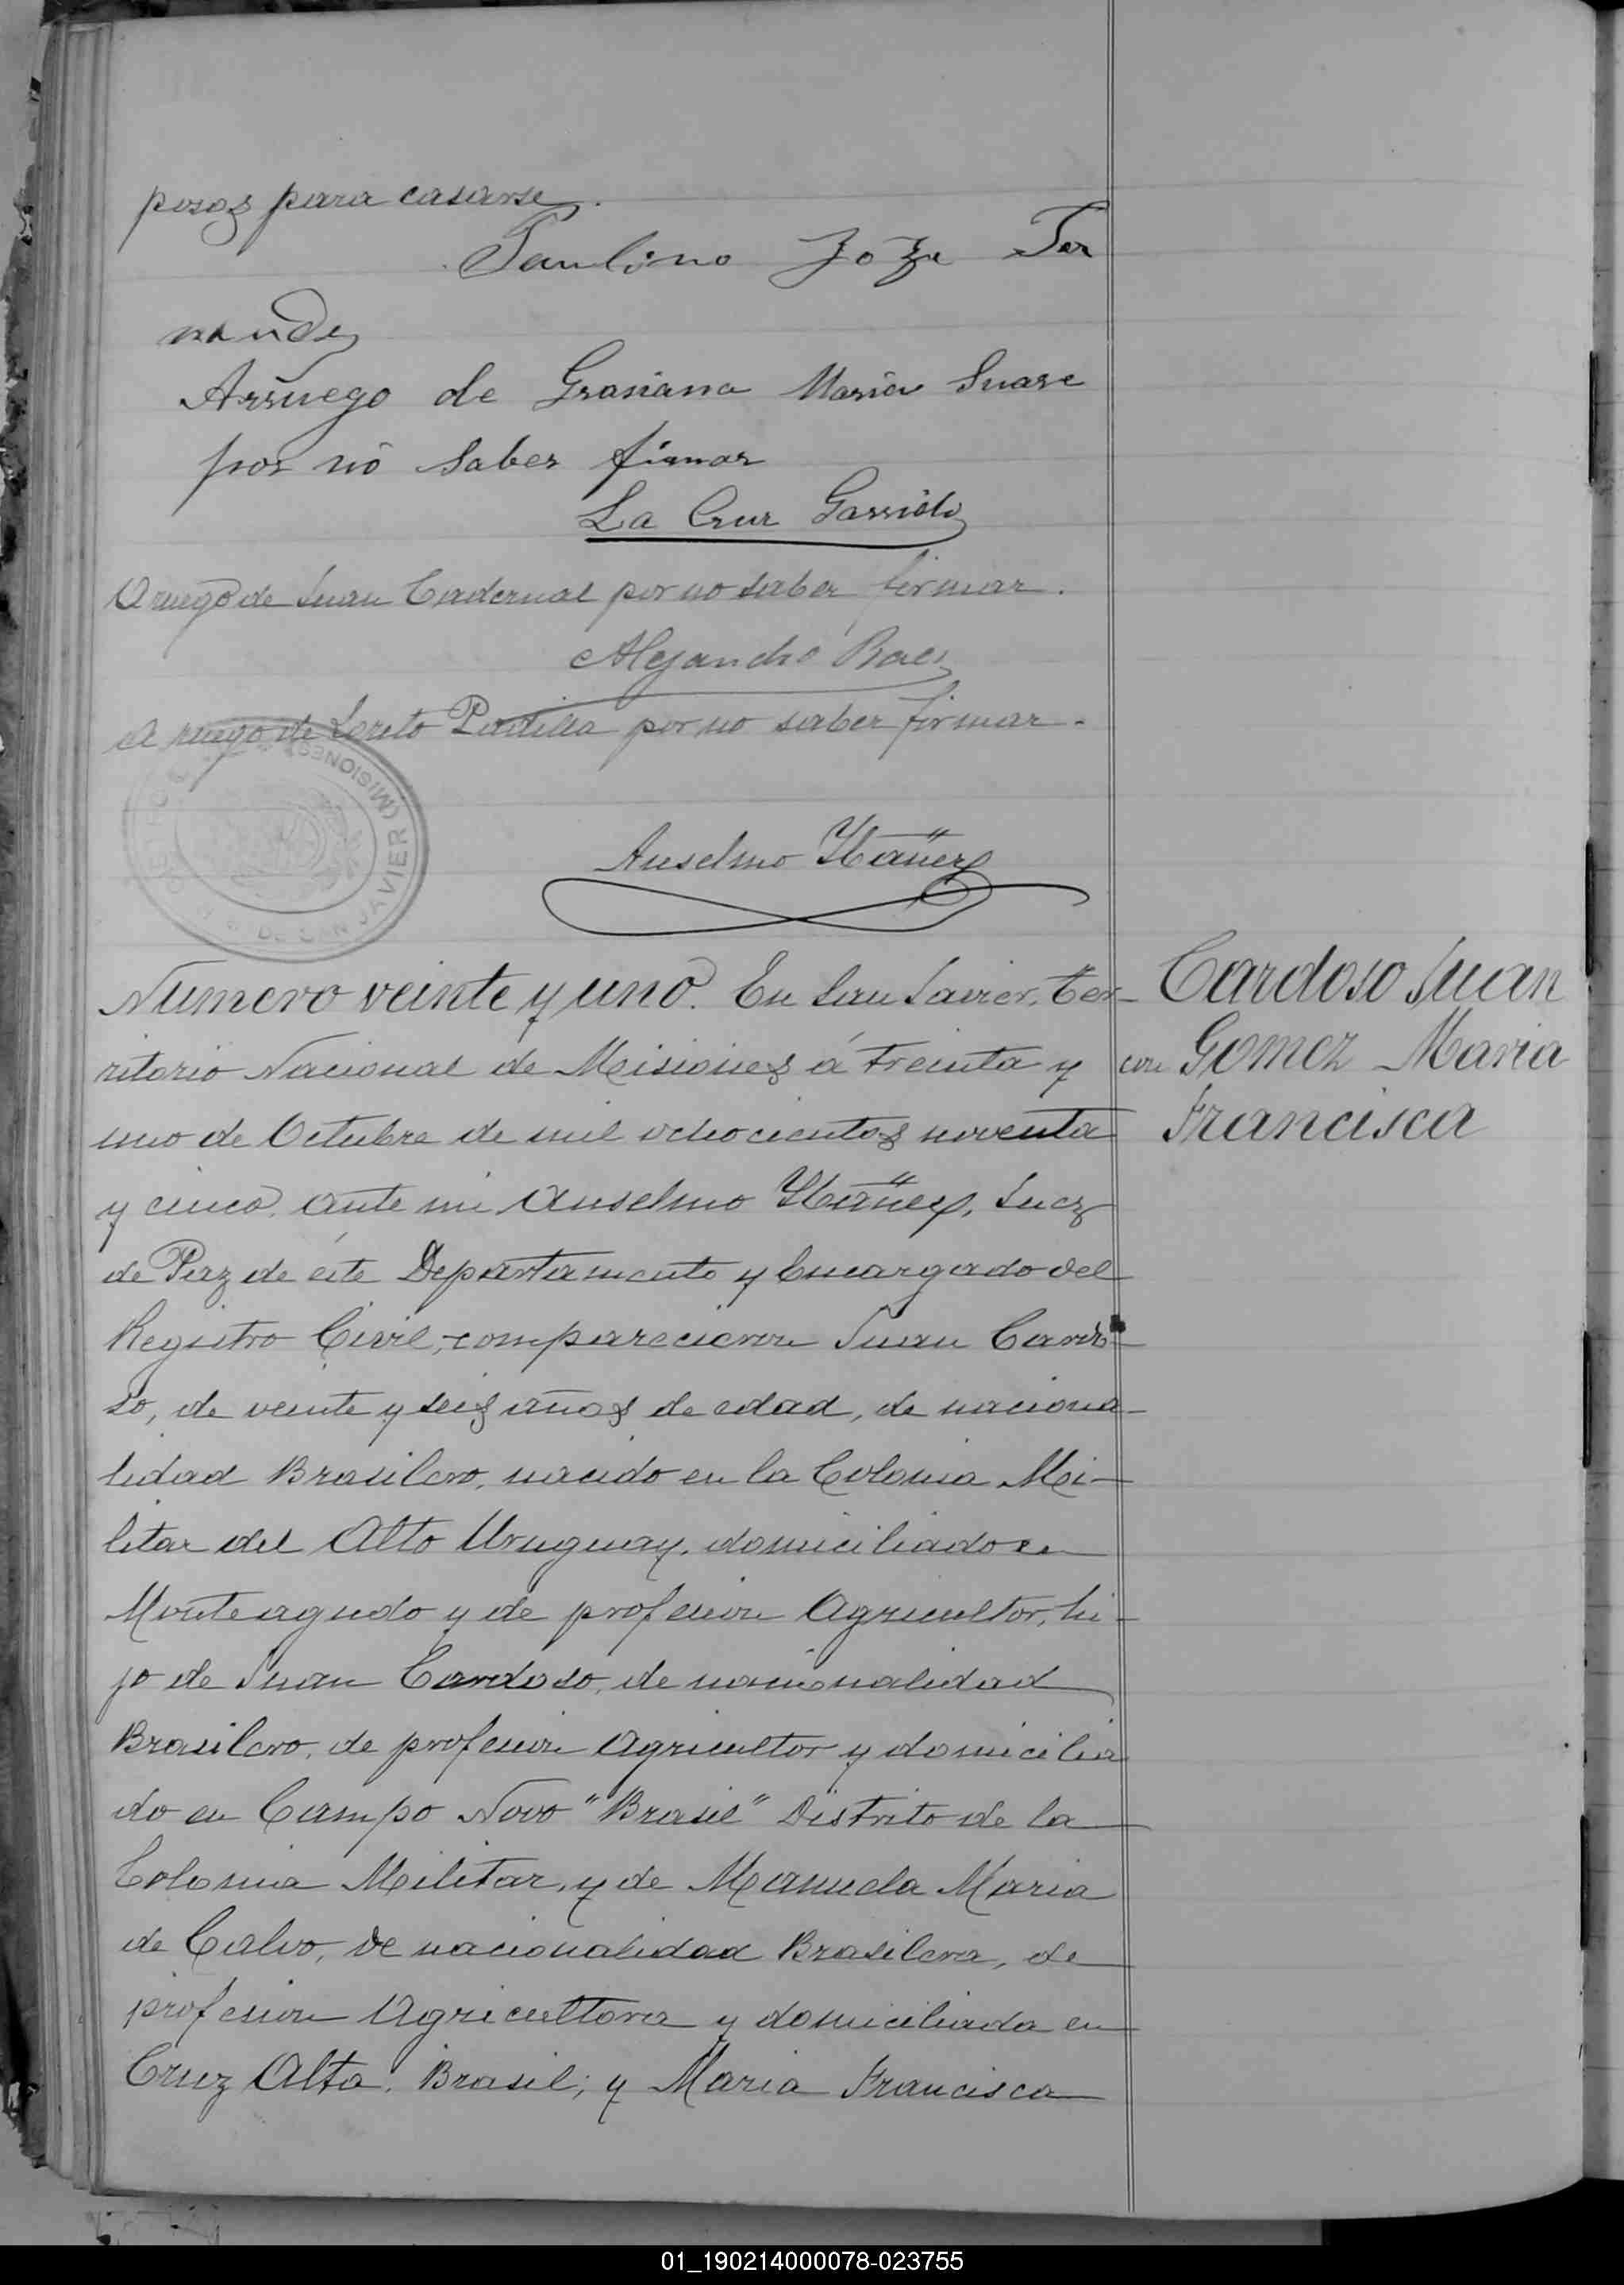 posos para casarse.
Paulino Joze Fer
nandez
Arruego de Grasiana Maria Suare
por nó saber firmar
La Cruz Garrido
A ruego de Juan Cadernal por no saber firmar.
Alejandro Baez
A ruego de Loreto Padilla por no saber firmar.
DE SAN JAVIER (MISIONES)
Anselmo Ybañez
Numero veinte y uno. En San Javier, Ter-
ritorio Nacional de Misiones á treinta y
uno de Octubre de mil ochocientos noventa
y cinco, ante mi Anselmo Ybañez, Juez
de Paz de éste Departamento y Encargado del
Registro Civil, comparecieron Juan Cardo-
so, de veinte y seis años de edad, de naciona-
lidad Brasilero, nacido en la Colonia Mi-
litar del Alto Uruguay, domiciliado en
Monteagudo y de profesion Agricultor, hi-
jo de Juan Cardoso, de nacionalidad
Brasilero, de profesion Agricultor y domicilia
do en Campo Novo "Brasil" Distrito de la
Colonia Militar, y de Manuela Maria
de Calvo, de nacionalidad Brasilera, de
profesion Agricultora y domiciliada en
Cruz Alta, Brasil; y Maria Francisca
Cardoso Juan
con Gomez Maria
Francisca
01_190214000078-023755